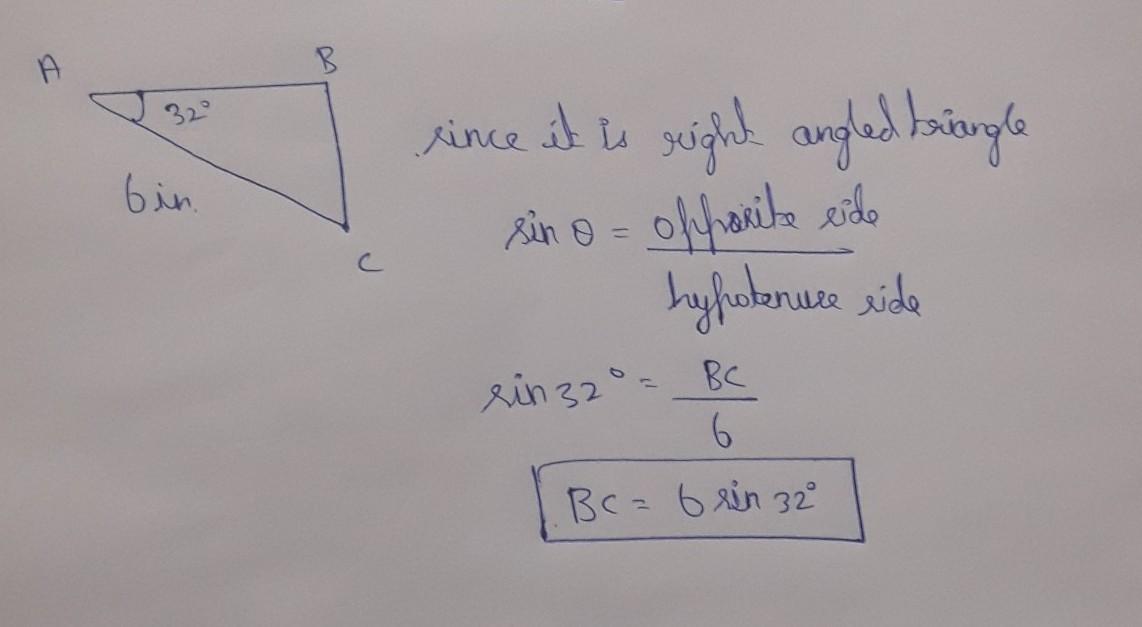 A
B
32°
6 in.
C
since it is right angled triangle
sin θ = opposite side
hypotenuse side
sin 32° = BC
6
BC = 6 sin 32°